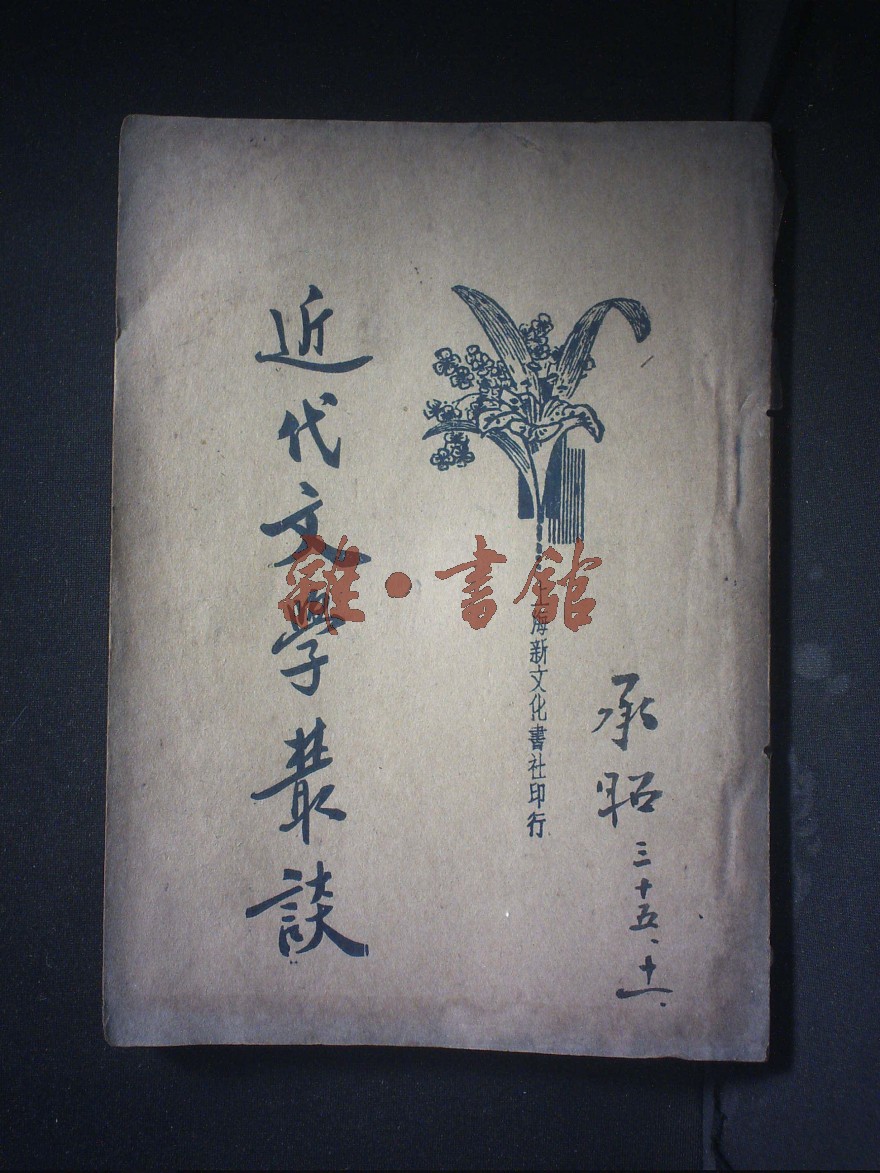 承昭
三十五、十一、
上海新文化書社印行
近代文學叢談
雜·書館